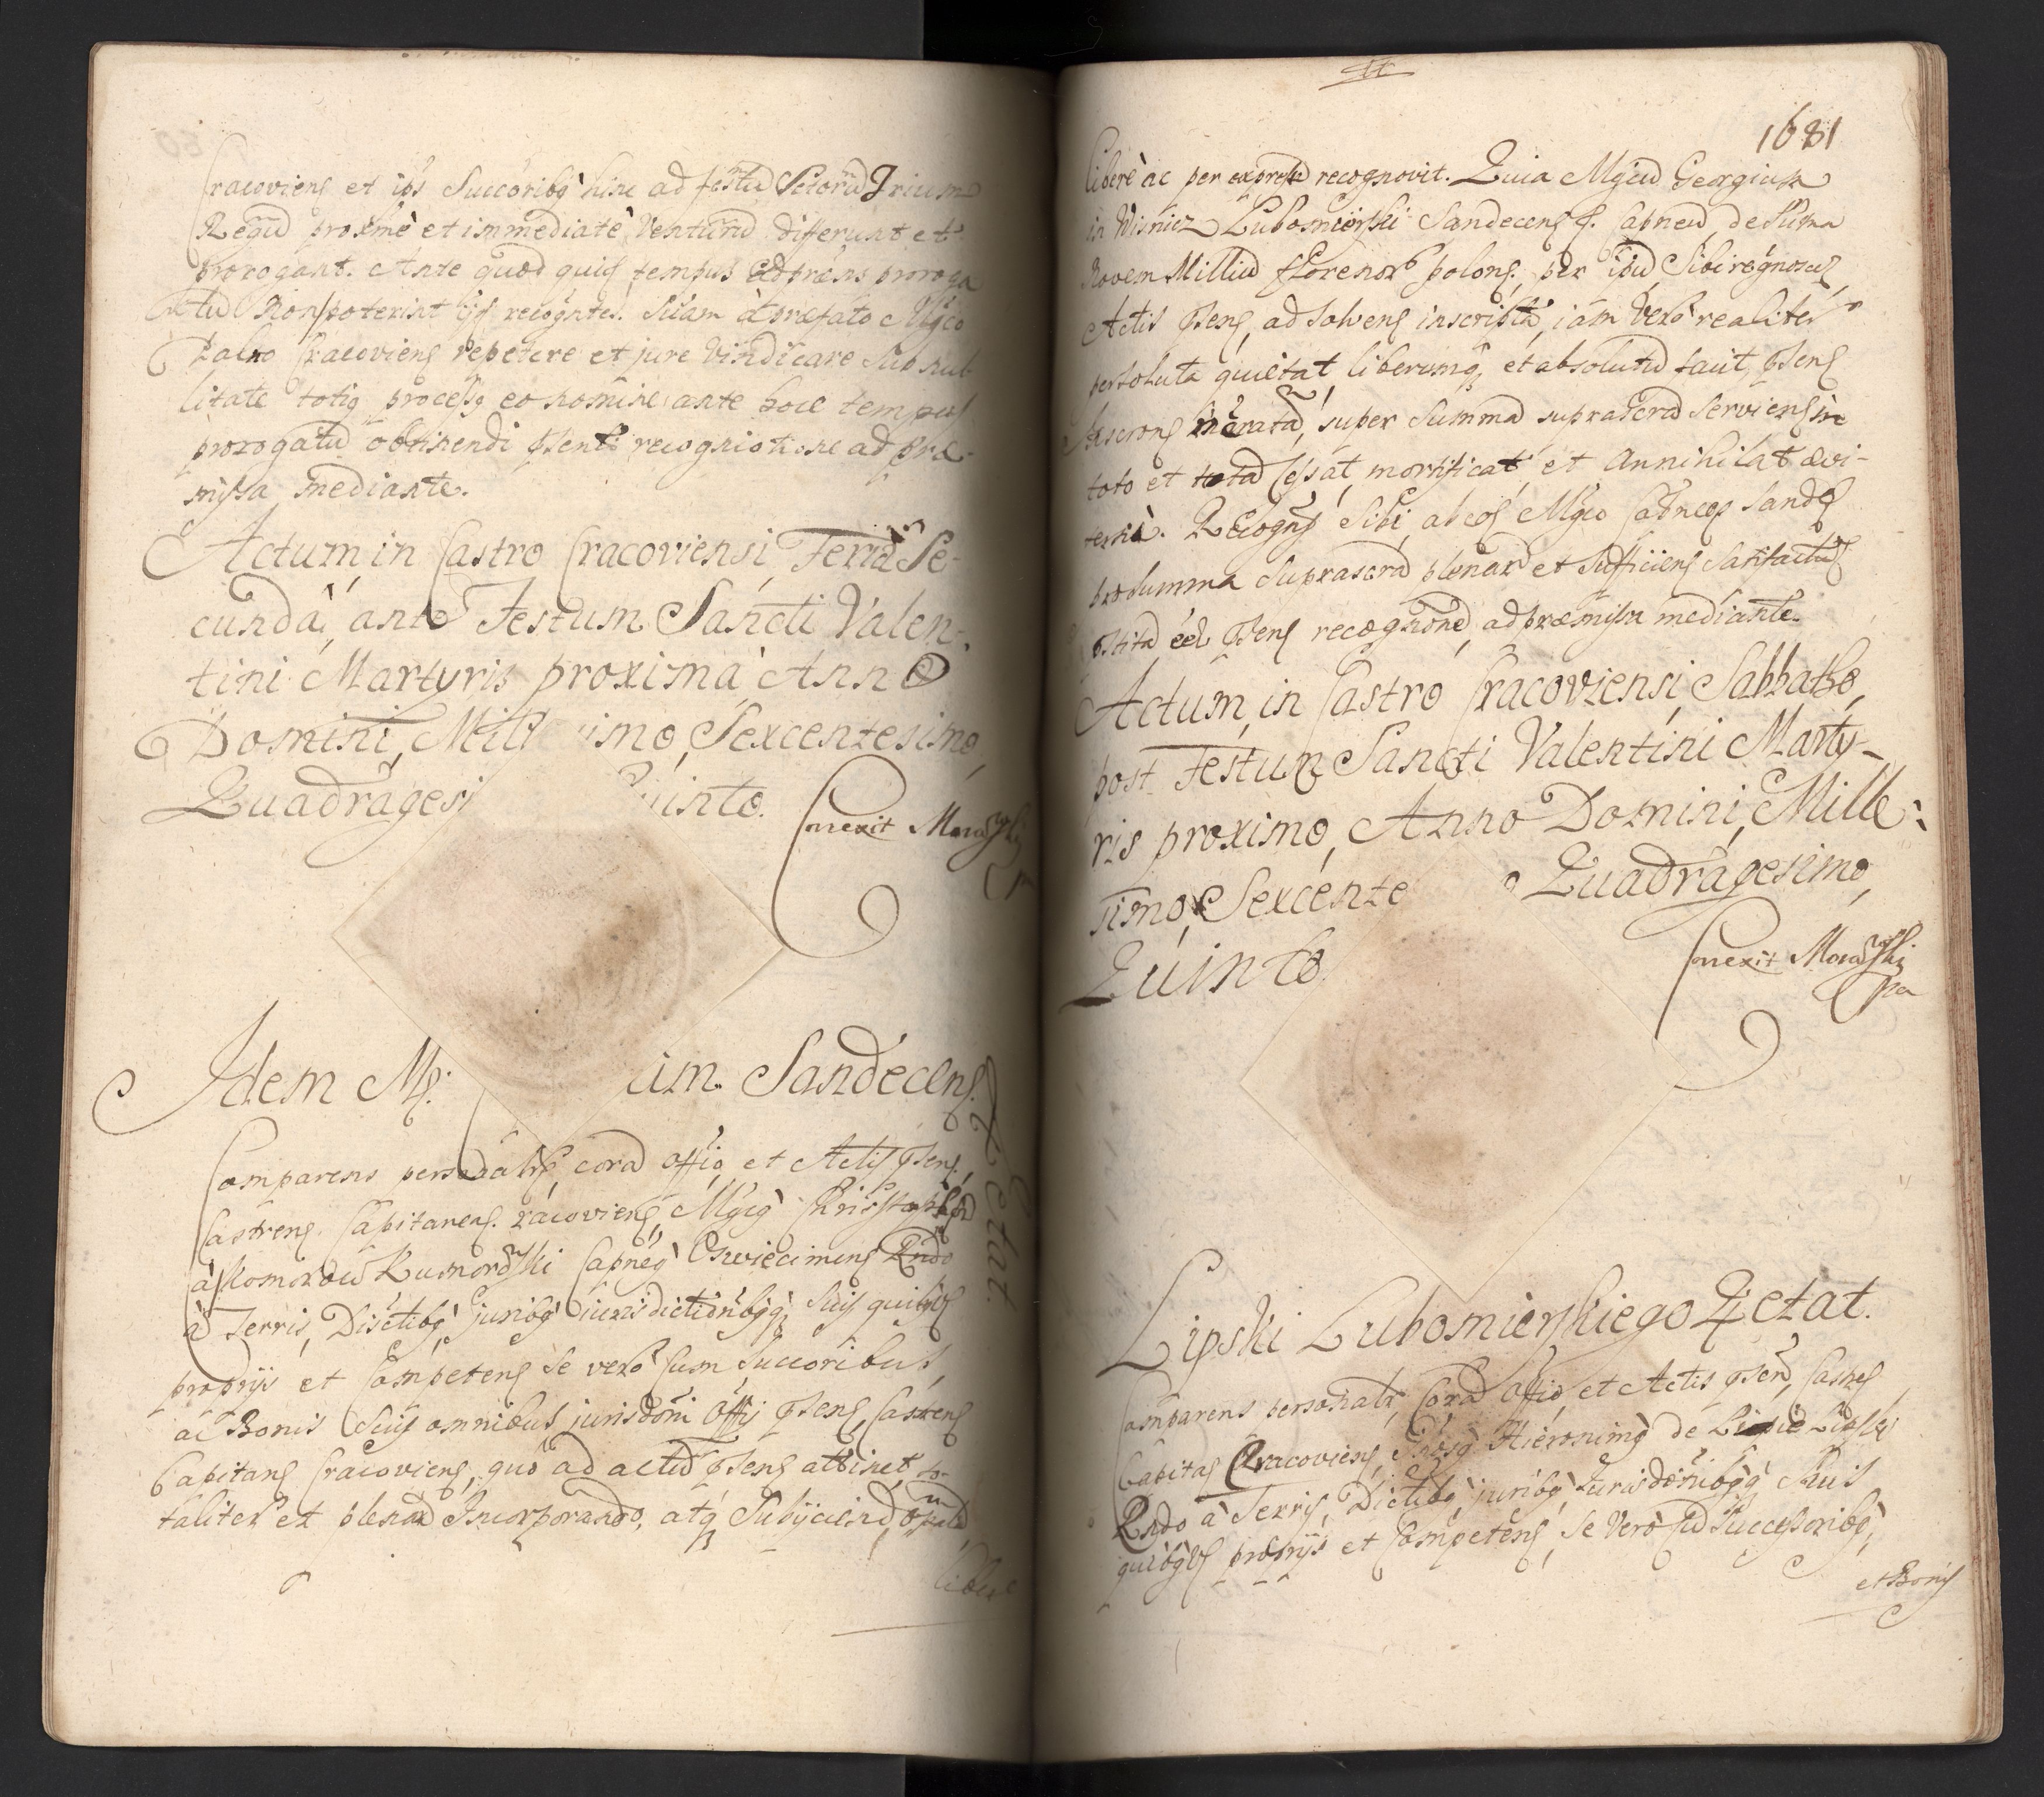 Cracovien et ips Succoribq hinc ad festu Sctoru Trium
Regu proxime et immediate Venturu differunt et
prorogant. Ante quod quid tempus ad praens proroga
tu Non poterint ijs recogntes. Suam a praefato Mgco
Palno Cracovien repetere et jure Vindicare Sub nul
litate totiq processq eo nomine ante hoce tempus
prorogatu obtinendi psenti recognitione ad prae-
missa mediante.
Actum in Castro Cracoviensi Feria Se-
cunda, ante Festum Sancti Valen-
tini Martyris proxima Anno
Domini, Mill imo, Sexcentesimo,
Quadragesi uinto.
Conexit
Idem M um Sandecens
Qetat.
Comparens personalr cora Offio et Actis psens,
Castrens Capitanens racoviens Mgcq Chrisstoph
à Komorow Kumorowski Capneq Oswiecimens Rndo
à Terris, Disctibq juribq jurisdictionibqq Suis quibqs
proprijs et Competens Se vero Cum Succoribus,
ac Bonis Suis omnibus jurisdoni Offij psens, Castrens
Capitans Cracoviens, quo ad actu psens attinet to-
taliter et plena Incorporando, atq Subijciendo, pala
libere
1681
Libere ac per expressu recognovit. Quia Mgcu Georgium
in Wisnicz Lubomierski Sandecens Capneu de Suma
Novem Milliu fflorenor polons. per ipsu Sibi regnoscens
Actis psens, ad Solvens inscripta, iam vero realiter
persoluta quietat liberumq et absolutu facit, psens
super Summa suprascra Serviens in
toto et tota Cassat, mortificat et Annihilat aevi-
terne. Recogns Sibi ab eod Mgco Capneo Sands
pro Summa Suprascra plenar et Sufficiens Satisfactu
psens recognone, ad praemissa mediante.
Actum in Castro Cracoviensi, Sabbatho
post Festum Sancti Valentini Marty-
ris proximo, Anno Domini, Mille-
simo, Sexcente o Quadragesimo,
Quinto
Conexit
Lipski Lubomierskiego Qetat.
Comparens personalr Cora Offio et Actis psens, Castrs
Capitas Cracoviens, Gnosq Hieronimq de Lipie Lipski
Rndo à Terris, Dictibq juribq Jurisdonibqq Suis
quibqvs proprijs et Competens, Se vero su Successoribq,
et Bonis